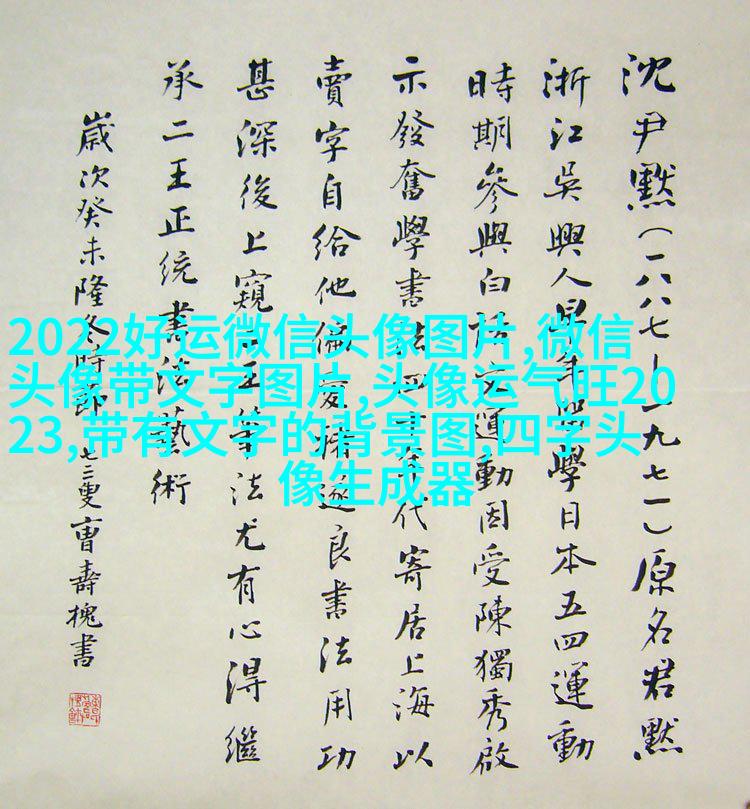 沈尹默(一八八七—一九七一)原名君默
浙江吳興人早年留學日本五四運動
時期參與白話文運動因受陳獨秀啟
示發奮學書法四十年代寄居上海以
賣字自給他偏愛褚遂良書法用功
甚深後上窺二王筆法尤有心得繼
承二王正統書法藝術
歲次癸未隆冬時節七二叟曹壽槐書
2022好运微信头像图片,微信
头像带文字图片,头像运气旺20
23,带有文字的背景图 四字头
像生成器